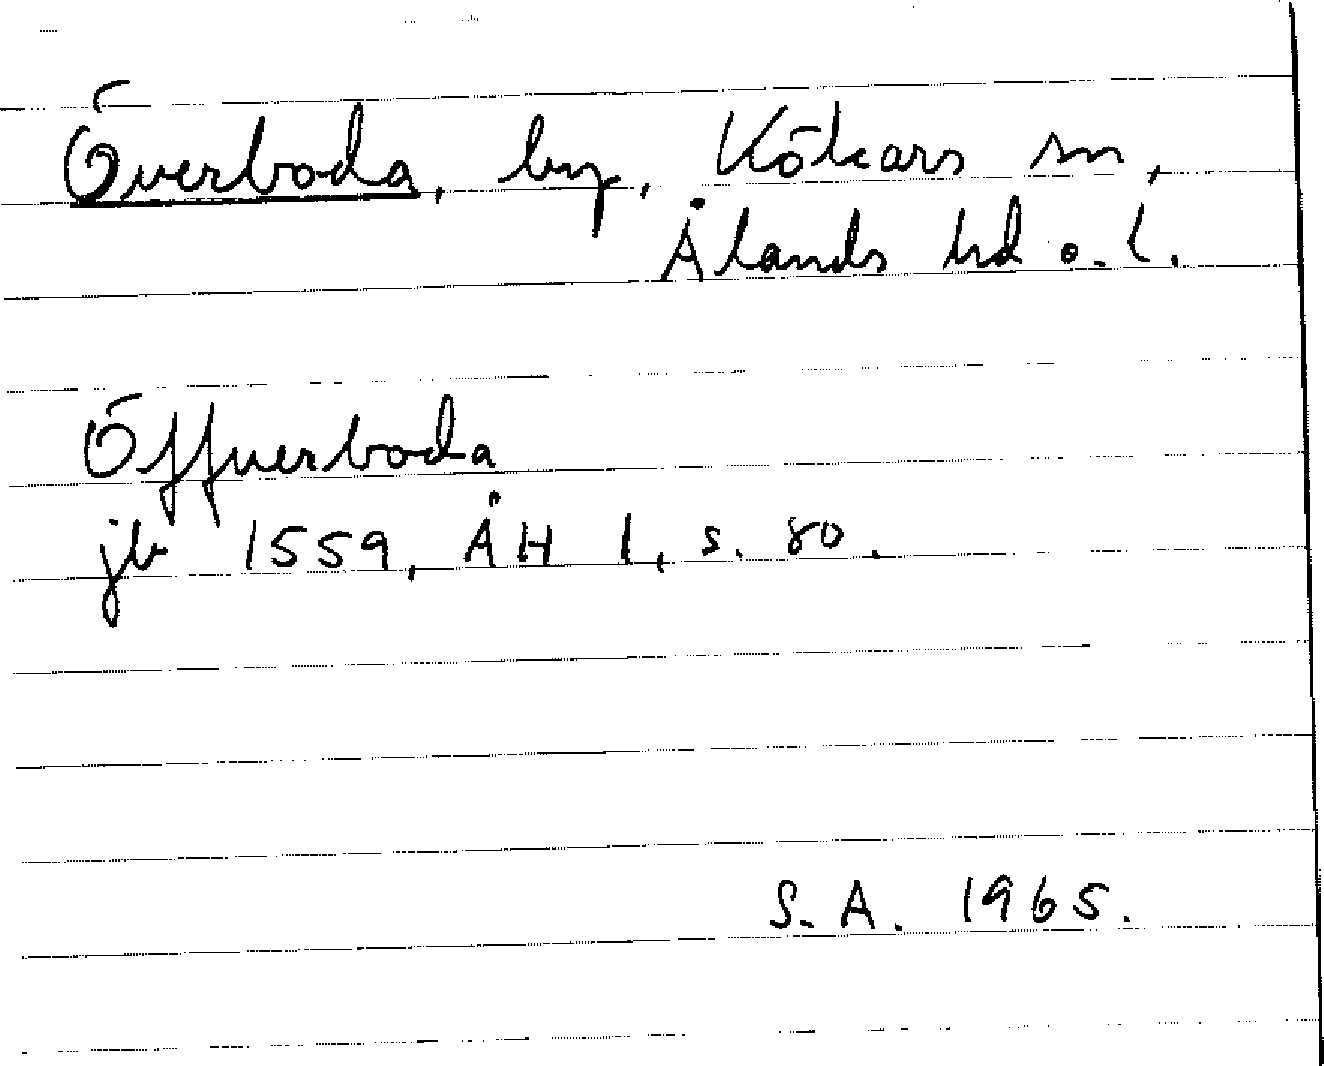 Överboda, by, Kökars sn,
Ålands hd o. l.
Öffuerboda
jb 1559, ÅH 1, s. 80.
S.A. 1965.